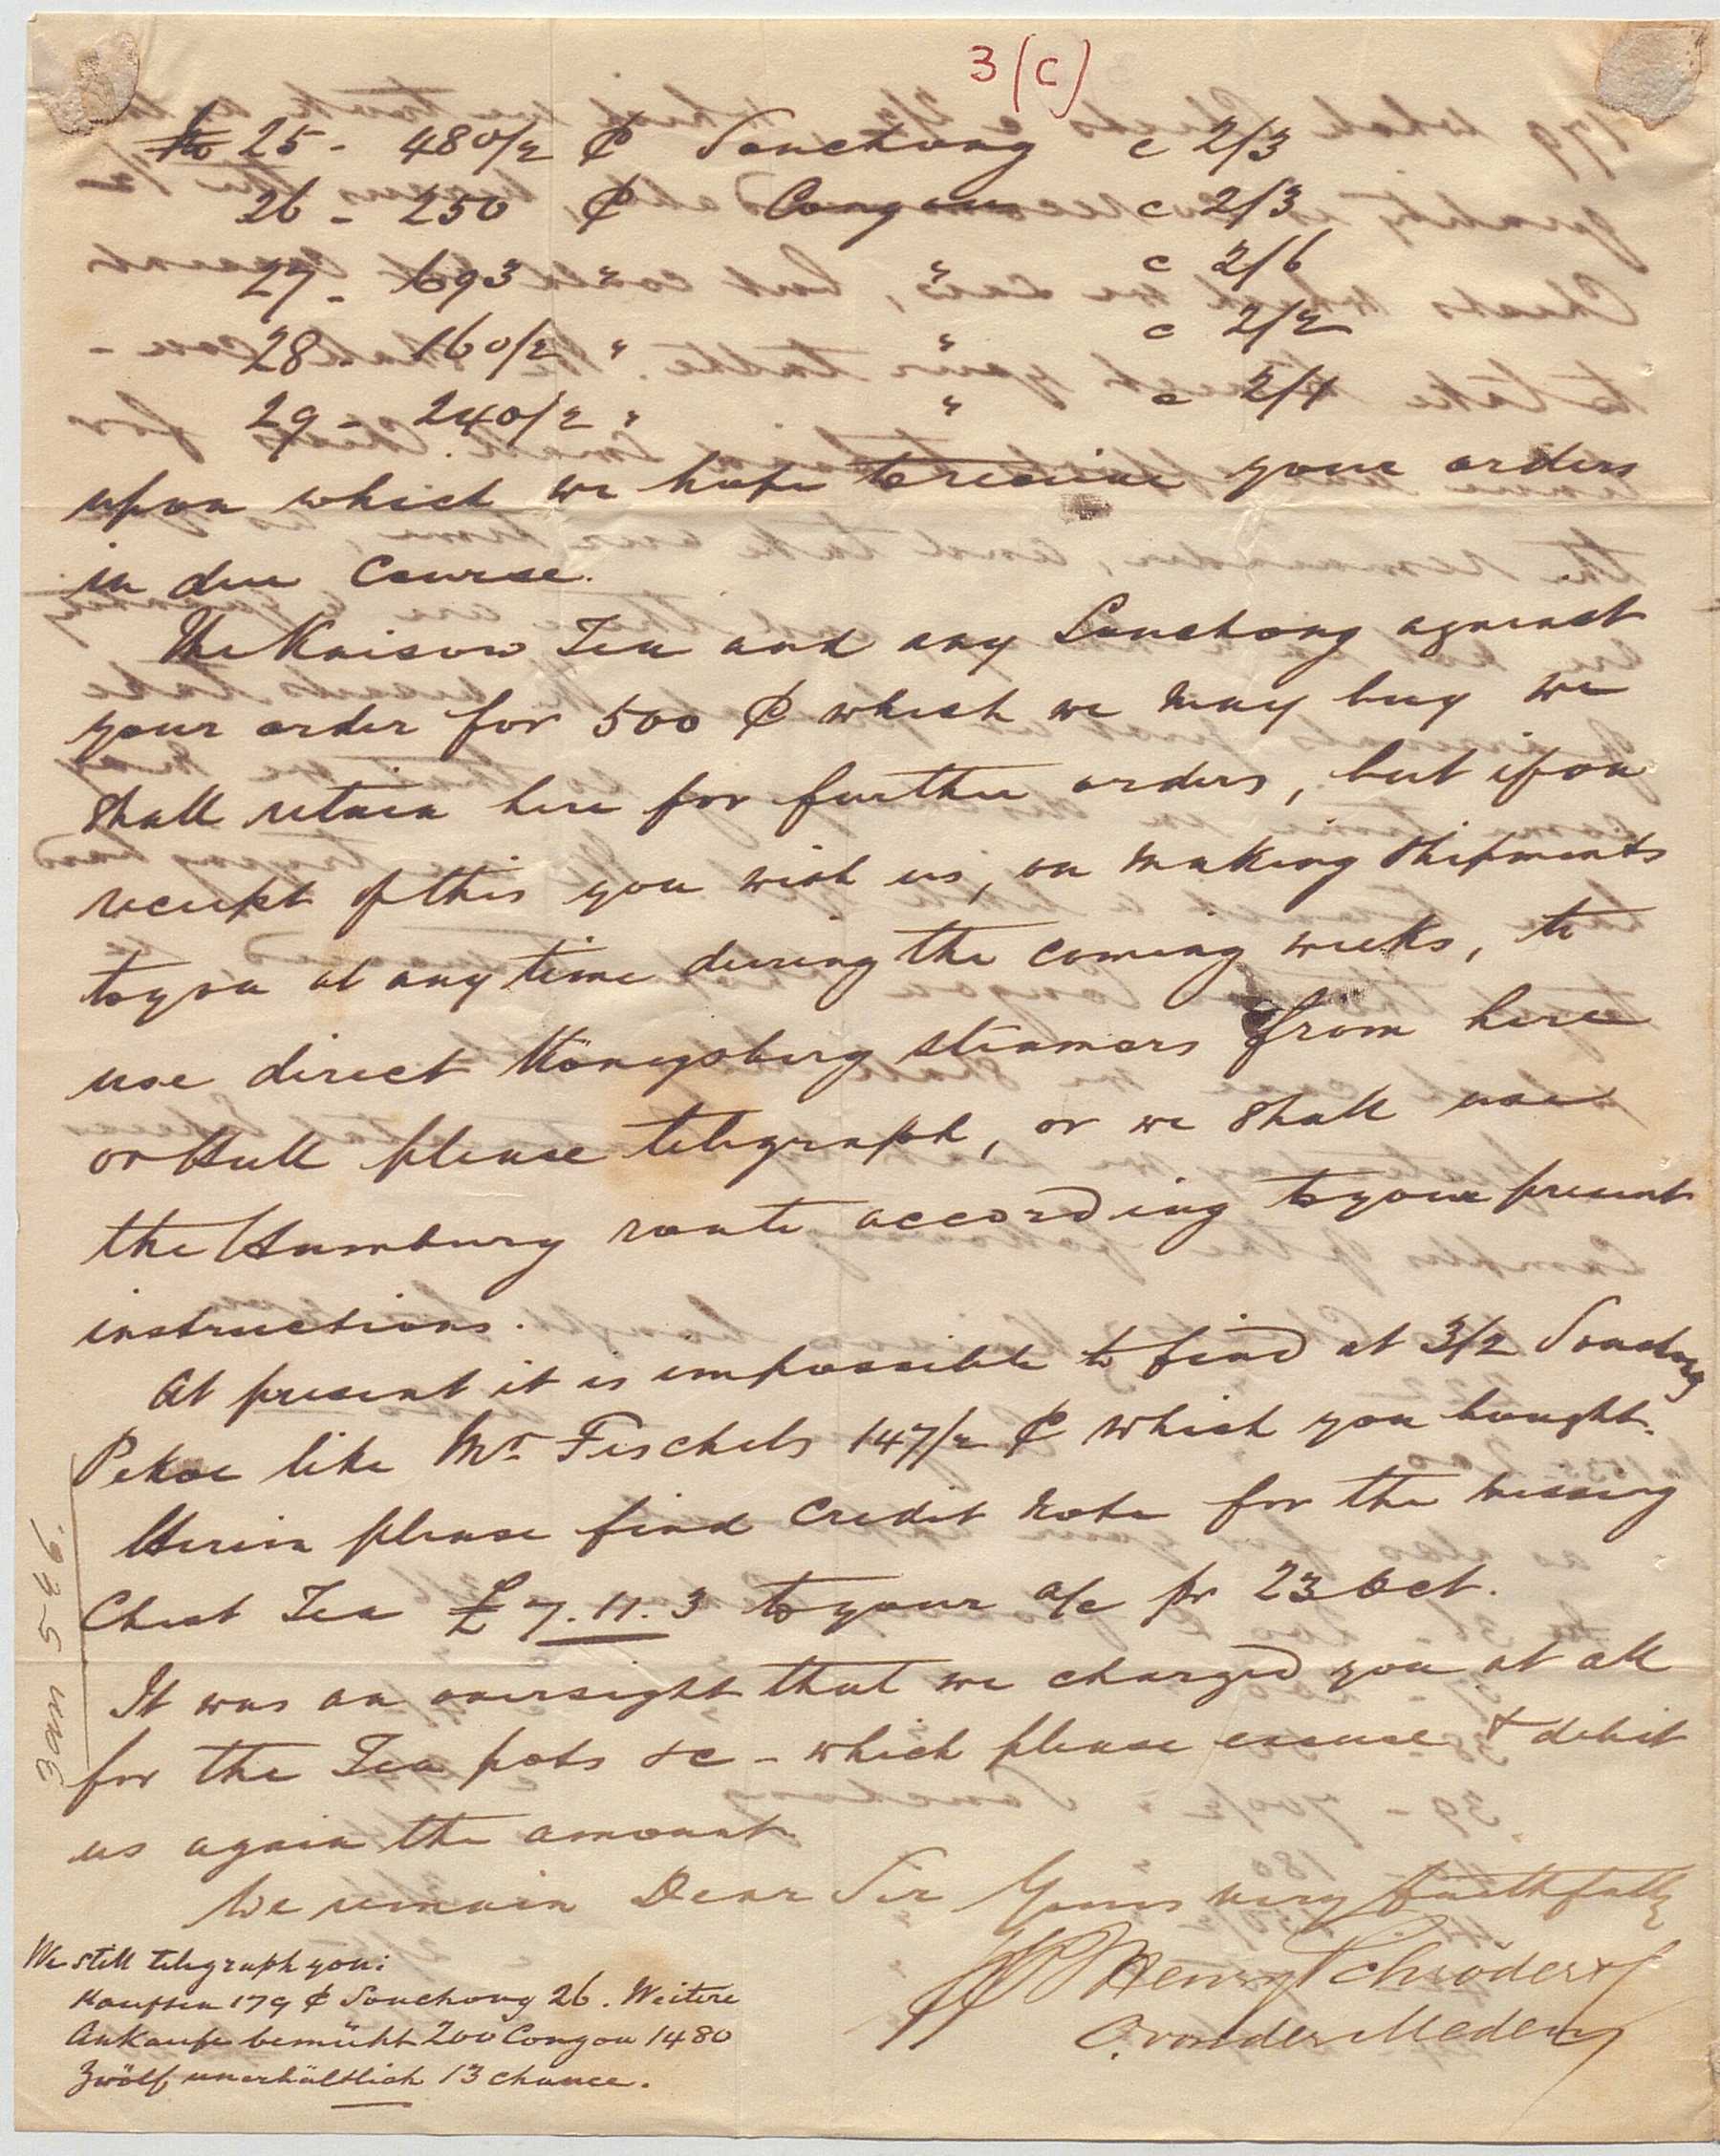 3/(C)
No 25 - 480/2 ₵ Souchong c 2/3
26 - 250 ₵ Congou c 2/3
27 - 693 " " c 2/6
28 - 160/2 " " c 2/2
29 - 240/2 " " c 2/1
upon which we hope to receive your orders
in due Course.
The Kaisow Tea and any Souchong against
your order for 500 ₵ which we may buy we
shall retain here for further orders, but if on
receipt of this you wish us, on making shipments
to you at any time during the coming weeks, to
use direct Königsberg steamers from here
or Hull please telegraph, or we shall use
the Hamburg route according to your present
instructions.
At present it is impossible to find at 3/2 Souchong
Pekoe like Mr Fischels 147/2 ₵ which you bought.
Herein please find Credit Note for the missing
Chest Tea £ 7.11.3 to your a/c pr 23 Oct.
It was an oversight that we charged you at all
for the Tea pots &c - which please excuse & debit
us again the amount.
We remain Dear Sir Yours very faithfully
Henry Schröder &
O. von der Meden
We still telegraph you:
Kauften 179 ₵ Souchong 26. Weitere
Ankaufe bemüht 200 Congou 1480
Zwölf unerhältlich 13 chance.